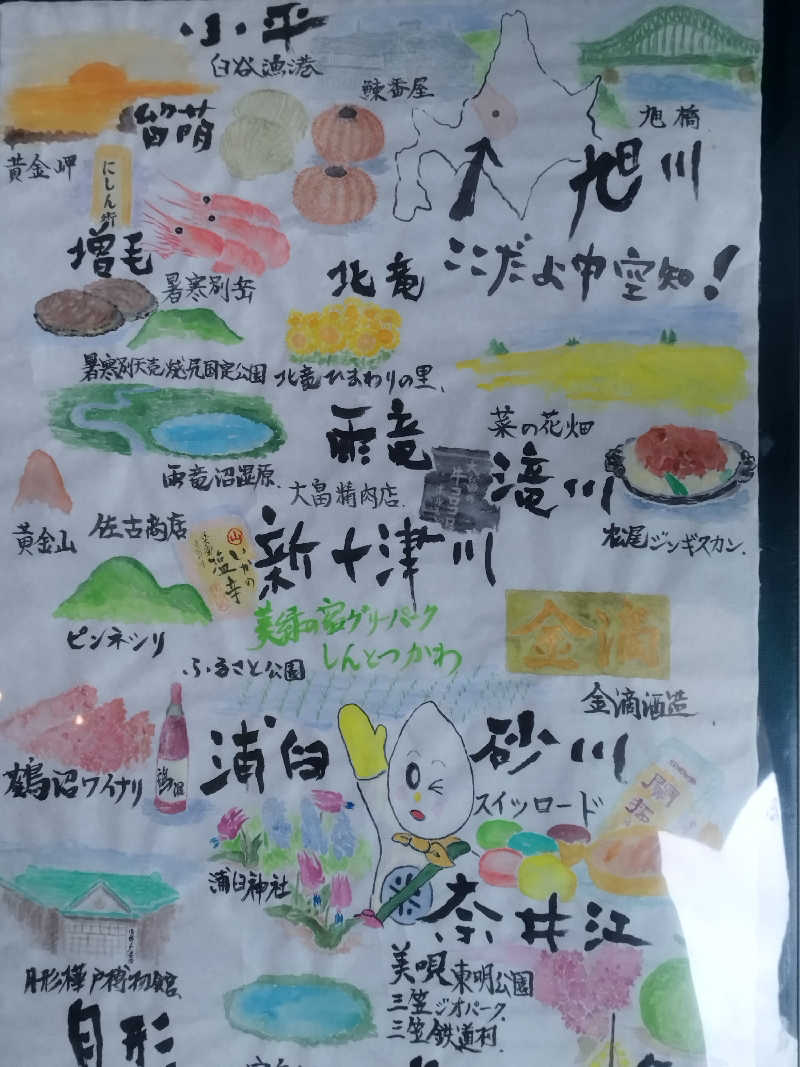 小平
臼谷漁港
鰊番屋
旭橋
留萌
黄金岬
にしん街
旭川
増毛
暑寒別岳
北竜
ここだよ中空知!
暑寒別天売焼尻国定公園
北竜ひまわりの里
菜の花畑
雨竜
雨竜沼湿原
大畠精肉店
牛
滝川
松尾ジンギスカン
黄金山
佐古商店
山
いかの
塩辛
新十津川
ピンネシリ
美緑の宿グリーパーク
しんとつかわ
金滴
ふるさと公園
金滴酒造
鶴沼ワイナリ
鶴沼
浦臼
砂川
スイツロード
開拓
浦臼神社
米
奈井江
月形樺戸博物館
美唄
東明公園
三笠ジオパーク
三笠鉄道村
月形